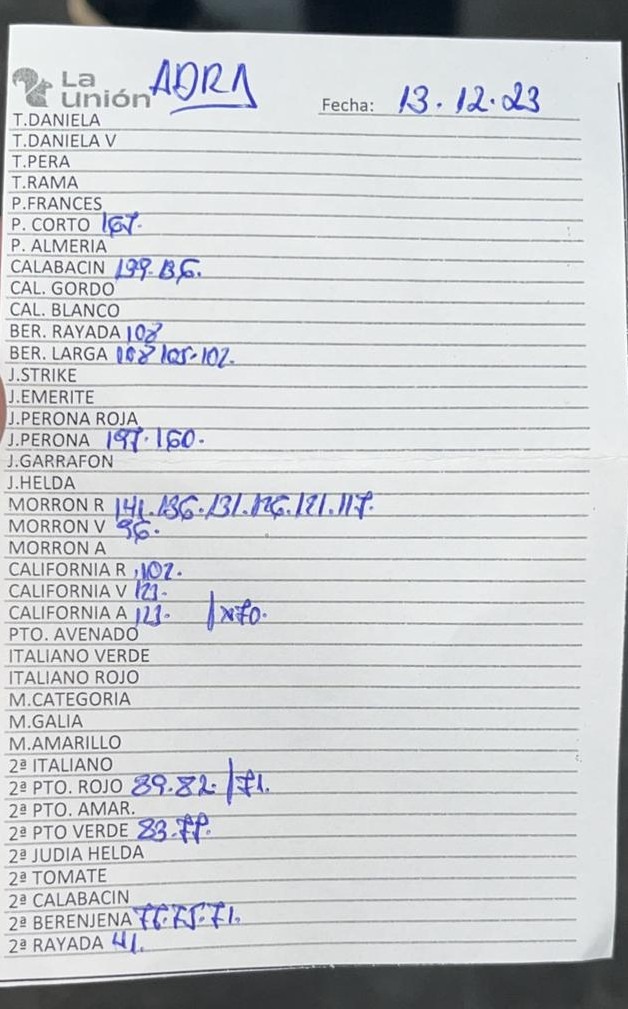 La unión ADRA Fecha: 13.12.23
T.DANELA
T.DANIELA V
T.PERA
T.RAMA
P.FRANCES
P. CORTO 167.
P. ALMERIA
CALABACIN 199.136.
CAL. GORDO
CAL. BLANCO
BER. RAYADA 108
BER. LARGA 108 105.102.
J.STRIKE
J.EMERITE
J.PERONA ROJA
J.PERONA 197.160.
J.GARRAFON
J.HELDA
MORRON R 141.136.131.126.121.117.
MORRON V 96.
MORRON A
CALIFORNIA R 102.
CALIFORNIA V 123.
CALIFORNIA A 123. /x70.
PTO. AVENADO
ITALIANO VERDE
ITALIANO ROJO
M.CATEGORIA
M.GALIA
M.AMARILLO
2ª ITALIANO
2ª PTO. ROJO 89.82. /71.
2ª PTO. AMAR.
2ª PTO VERDE 83.77.
2ª JUDIA HELDA
2ª TOMATE
2ª CALABACIN
2ª BERENJENA 76.75.71.
2ª RAYADA 41.